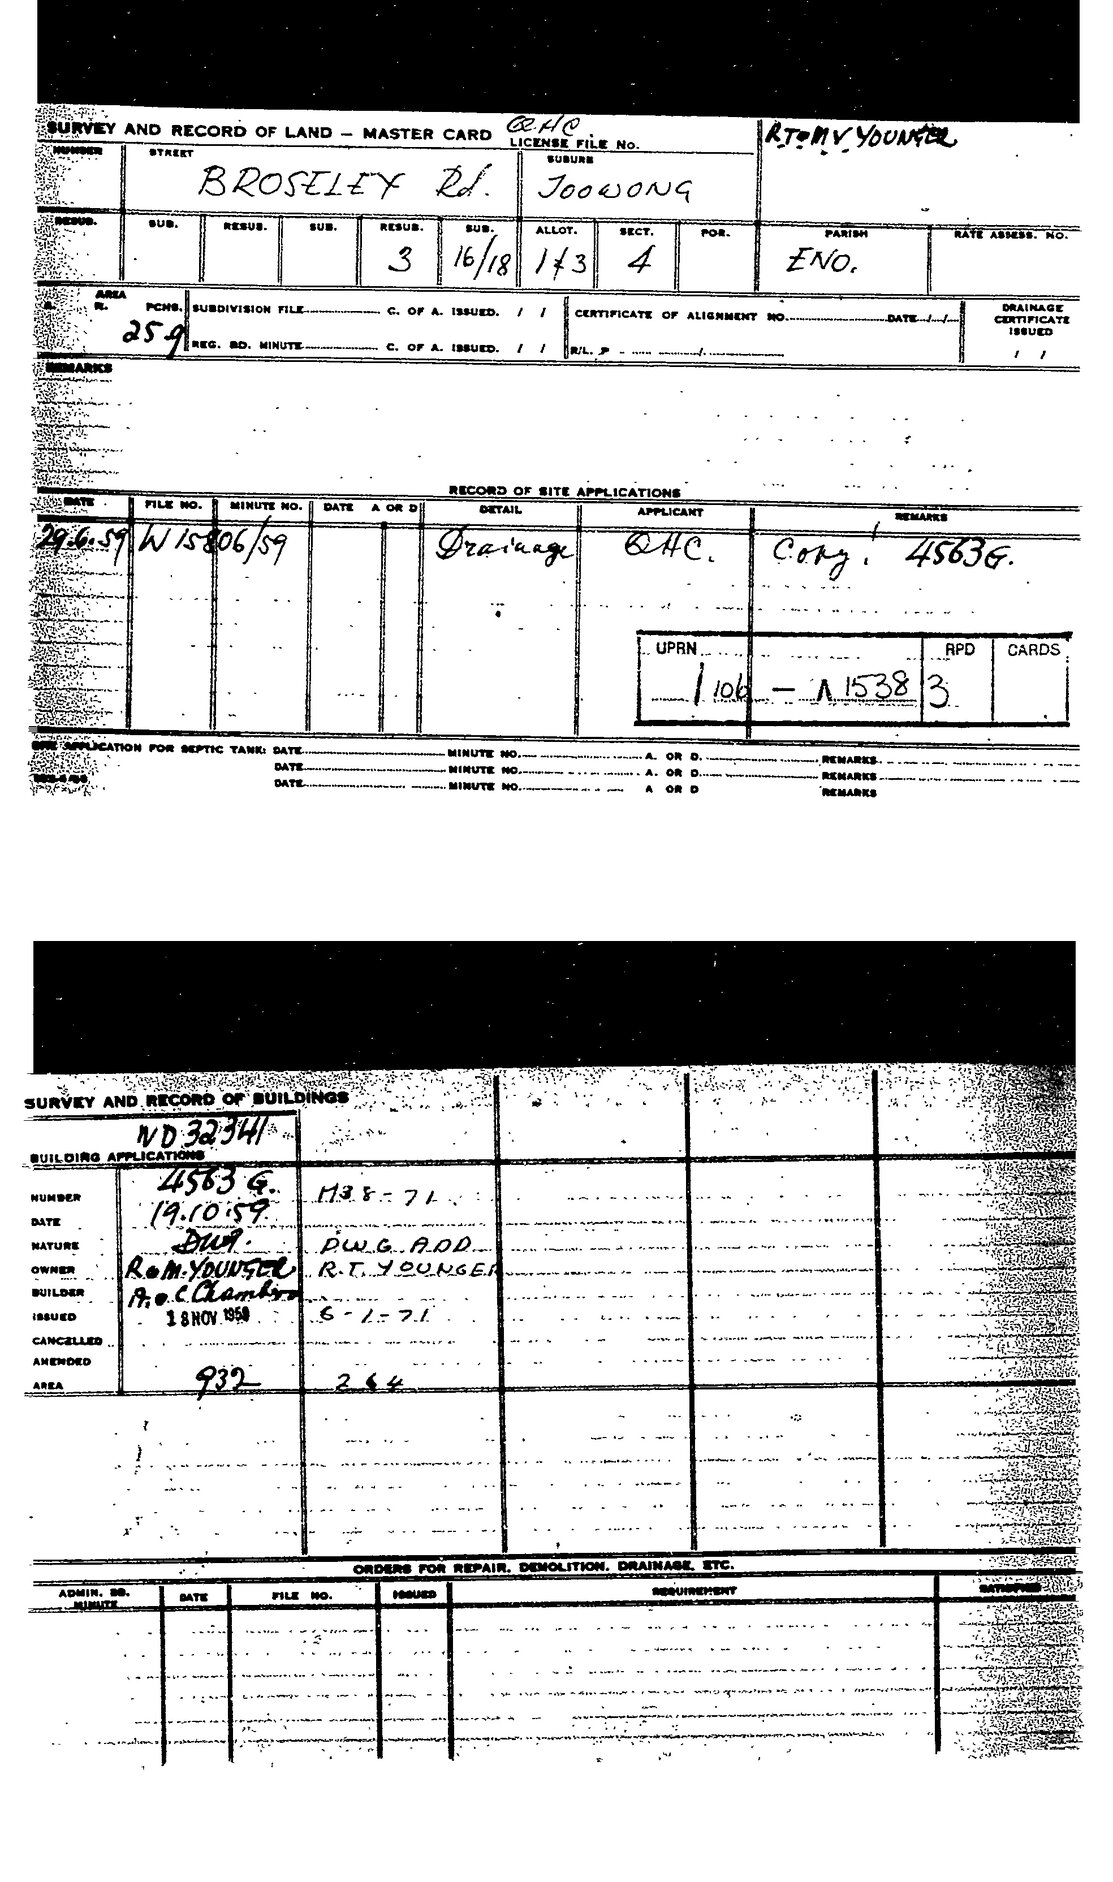 SURVEY AND RECORD OF LAND – MASTER CARD QHC.
LICENSE FILE No.
R.T & M.V. YOUNGER
NUMBER STREET SUBURB
BROSELEY Rd. TOOWONG
RESUB. SUB. RESUB. SUB. RESUB. SUB. ALLOT. SECT. POR. PARISH RATE ASSESS. NO.
3 16/18 1 & 3 4 ENO.
AREA
A. R. PCHS. SUBDIVISION FILE C. OF A. ISSUED. / / CERTIFICATE OF ALIGNMENT NO. DATE / / DRAINAGE CERTIFICATE ISSUED
25.9 REG. BD. MINUTE C. OF A. ISSUED. / / R/L. P / / /
REMARKS
RECORD OF SITE APPLICATIONS
DATE FILE NO. MINUTE NO. DATE A OR D DETAIL APPLICANT REMARKS
29.6.59 W15806/59 Drainage QHC. Copy. 4563G.
UPRN RPD CARDS
1106 – 1538 3
SITE APPLICATION FOR SEPTIC TANK: DATE MINUTE NO. A. OR D. REMARKS
DATE MINUTE NO. A. OR D. REMARKS
DATE MINUTE NO. A OR D REMARKS
SURVEY AND RECORD OF BUILDINGS
ND32341
BUILDING APPLICATIONS
NUMBER 4563 G. H38-71
DATE 19.10.59
NATURE Dwg. DWG ADD
OWNER R & M. YOUNGER R.T. YOUNGER
BUILDER A. & C.
ISSUED 18 NOV 1959 6-1-71
CANCELLED
AMENDED
AREA 932 264
ORDERS FOR REPAIR, DEMOLITION, DRAINAGE, ETC.
ADMIN. BD. MINUTE DATE FILE NO. ISSUED REQUIREMENT SATISFIED